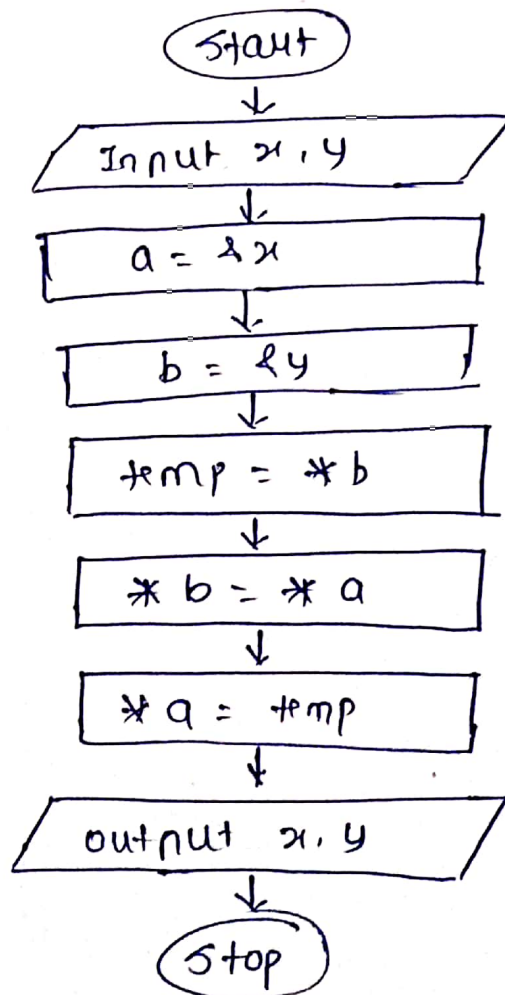 Start
Input x, y
a = &x
b = &y
temp = *b
*b = *a
*a = temp
output x, y
Stop